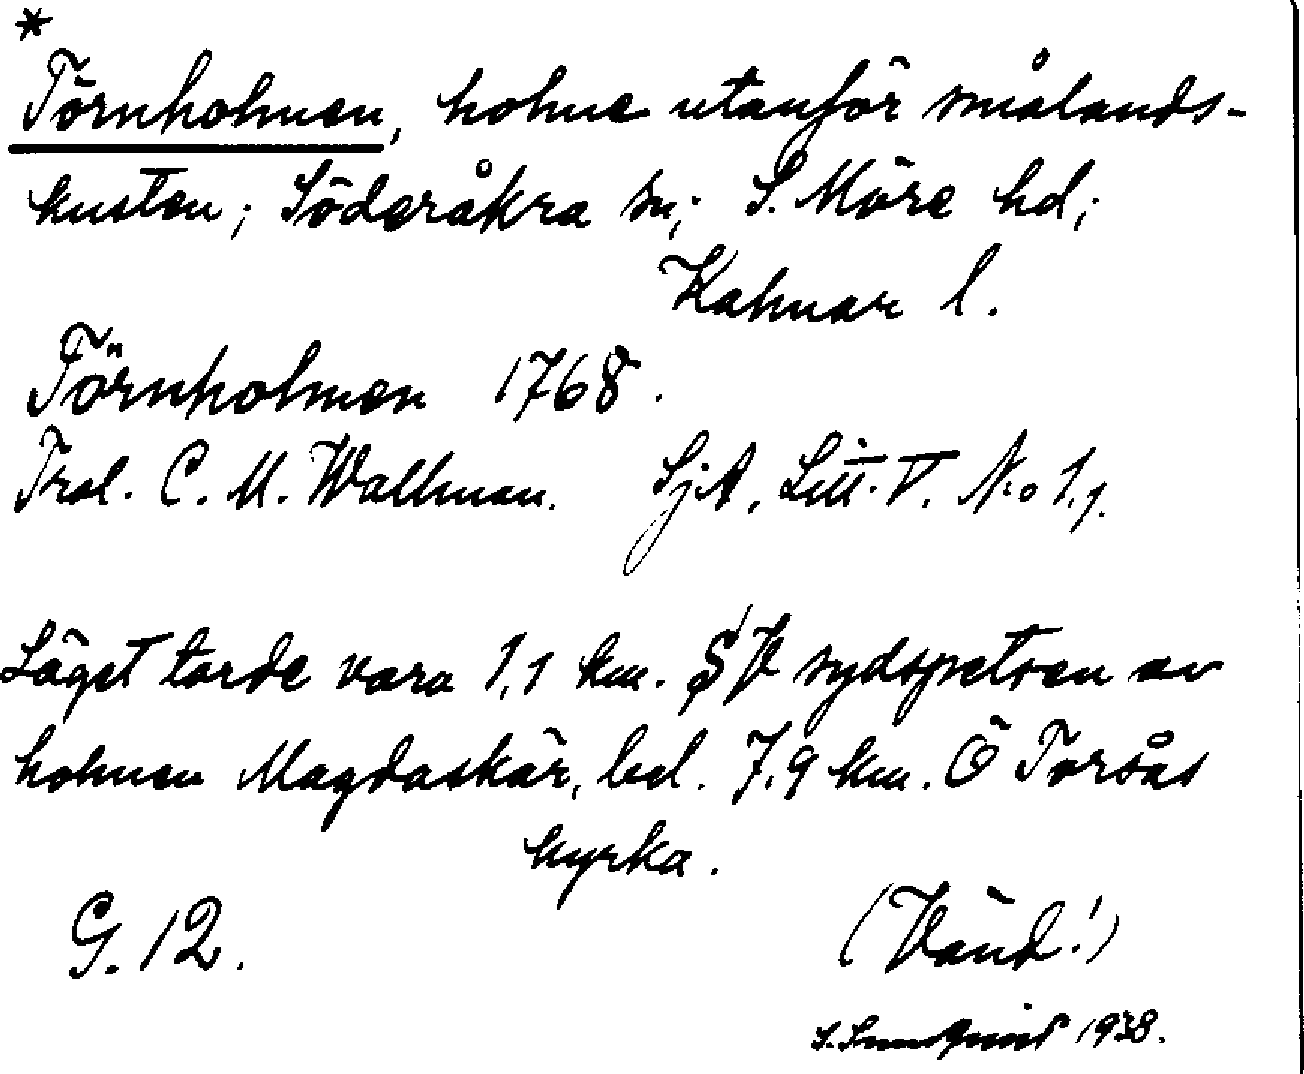 *
Törnholmen, holme utanför smålands-
kusten; Söderåkra sn; S. Möre hd;
Kalmar l.
Törnholmen 1768.
Trol. C. M. Wallman. SjA, Litt. V. N:o 1.1.
Läget torde vara 1,1 km. SV sydspetsen av
holmen Magdaskär, bel. 7,9 km. Ö Torsås
kyrka.
G. 12.
(Vänd!)
1938.